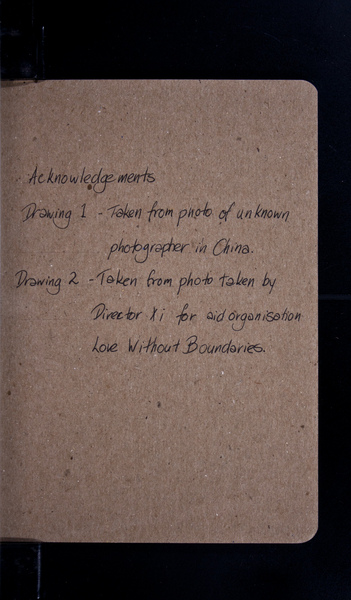 Acknowledgements
Drawing 1 - Taken from photo of unknown
photographer in China.
Drawing 2 - Taken from photo taken by
Director Xi for aid organisation
Love Without Boundaries.